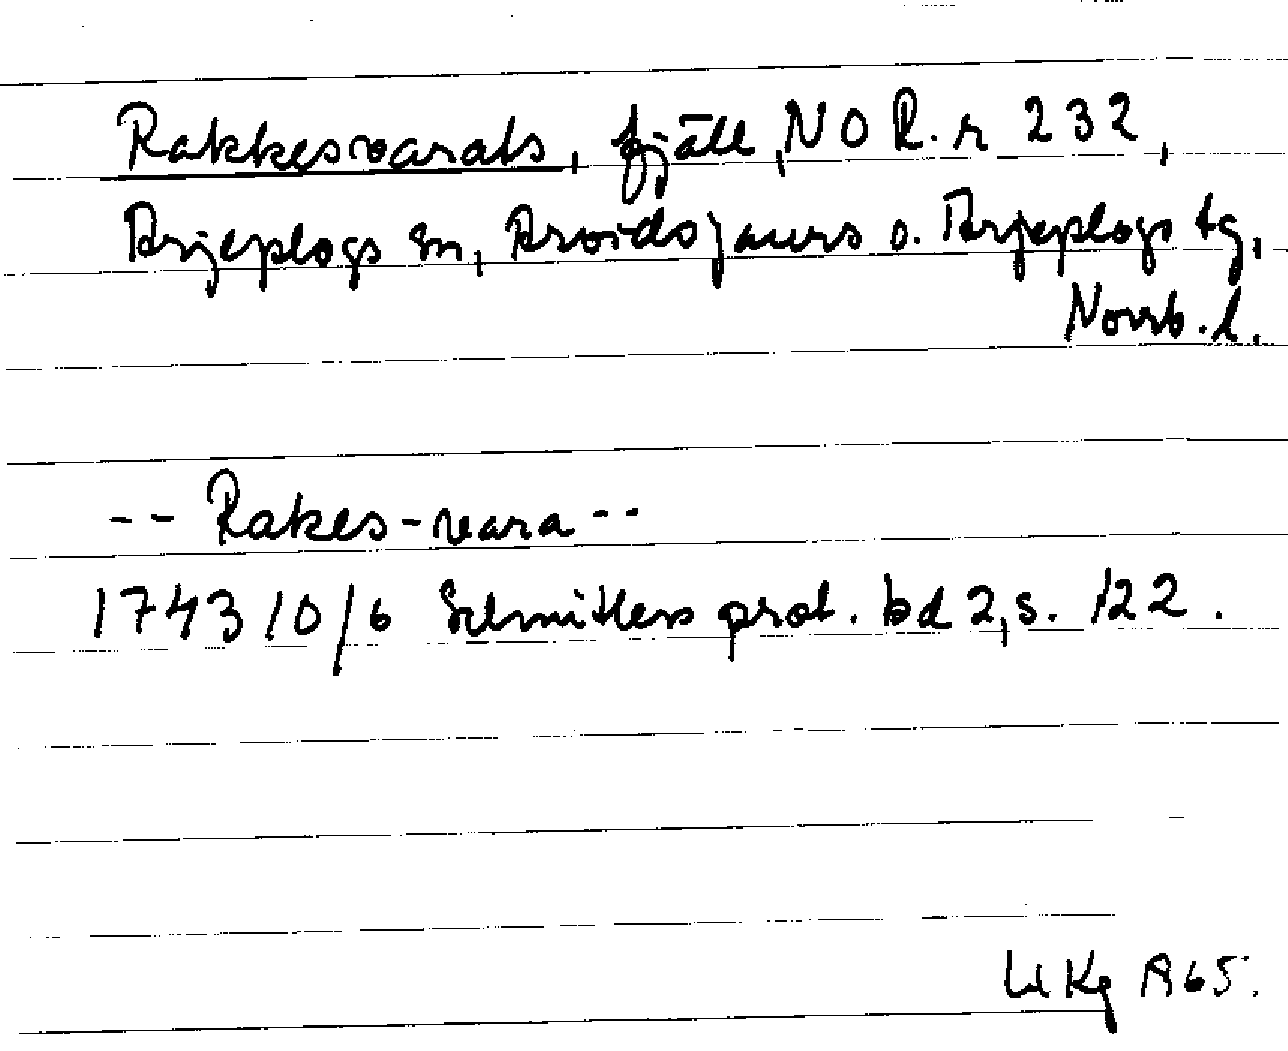 Rakkesvarats, fjäll, NO R.r 232,
Arjeplogs sn, Arvidsjaurs o. Arjeplogs tg,
Norrb. l.
-- Rakes-vara --
1743 10/6 Schnitlers prot. bd 2, s. 122.
UKg A65.